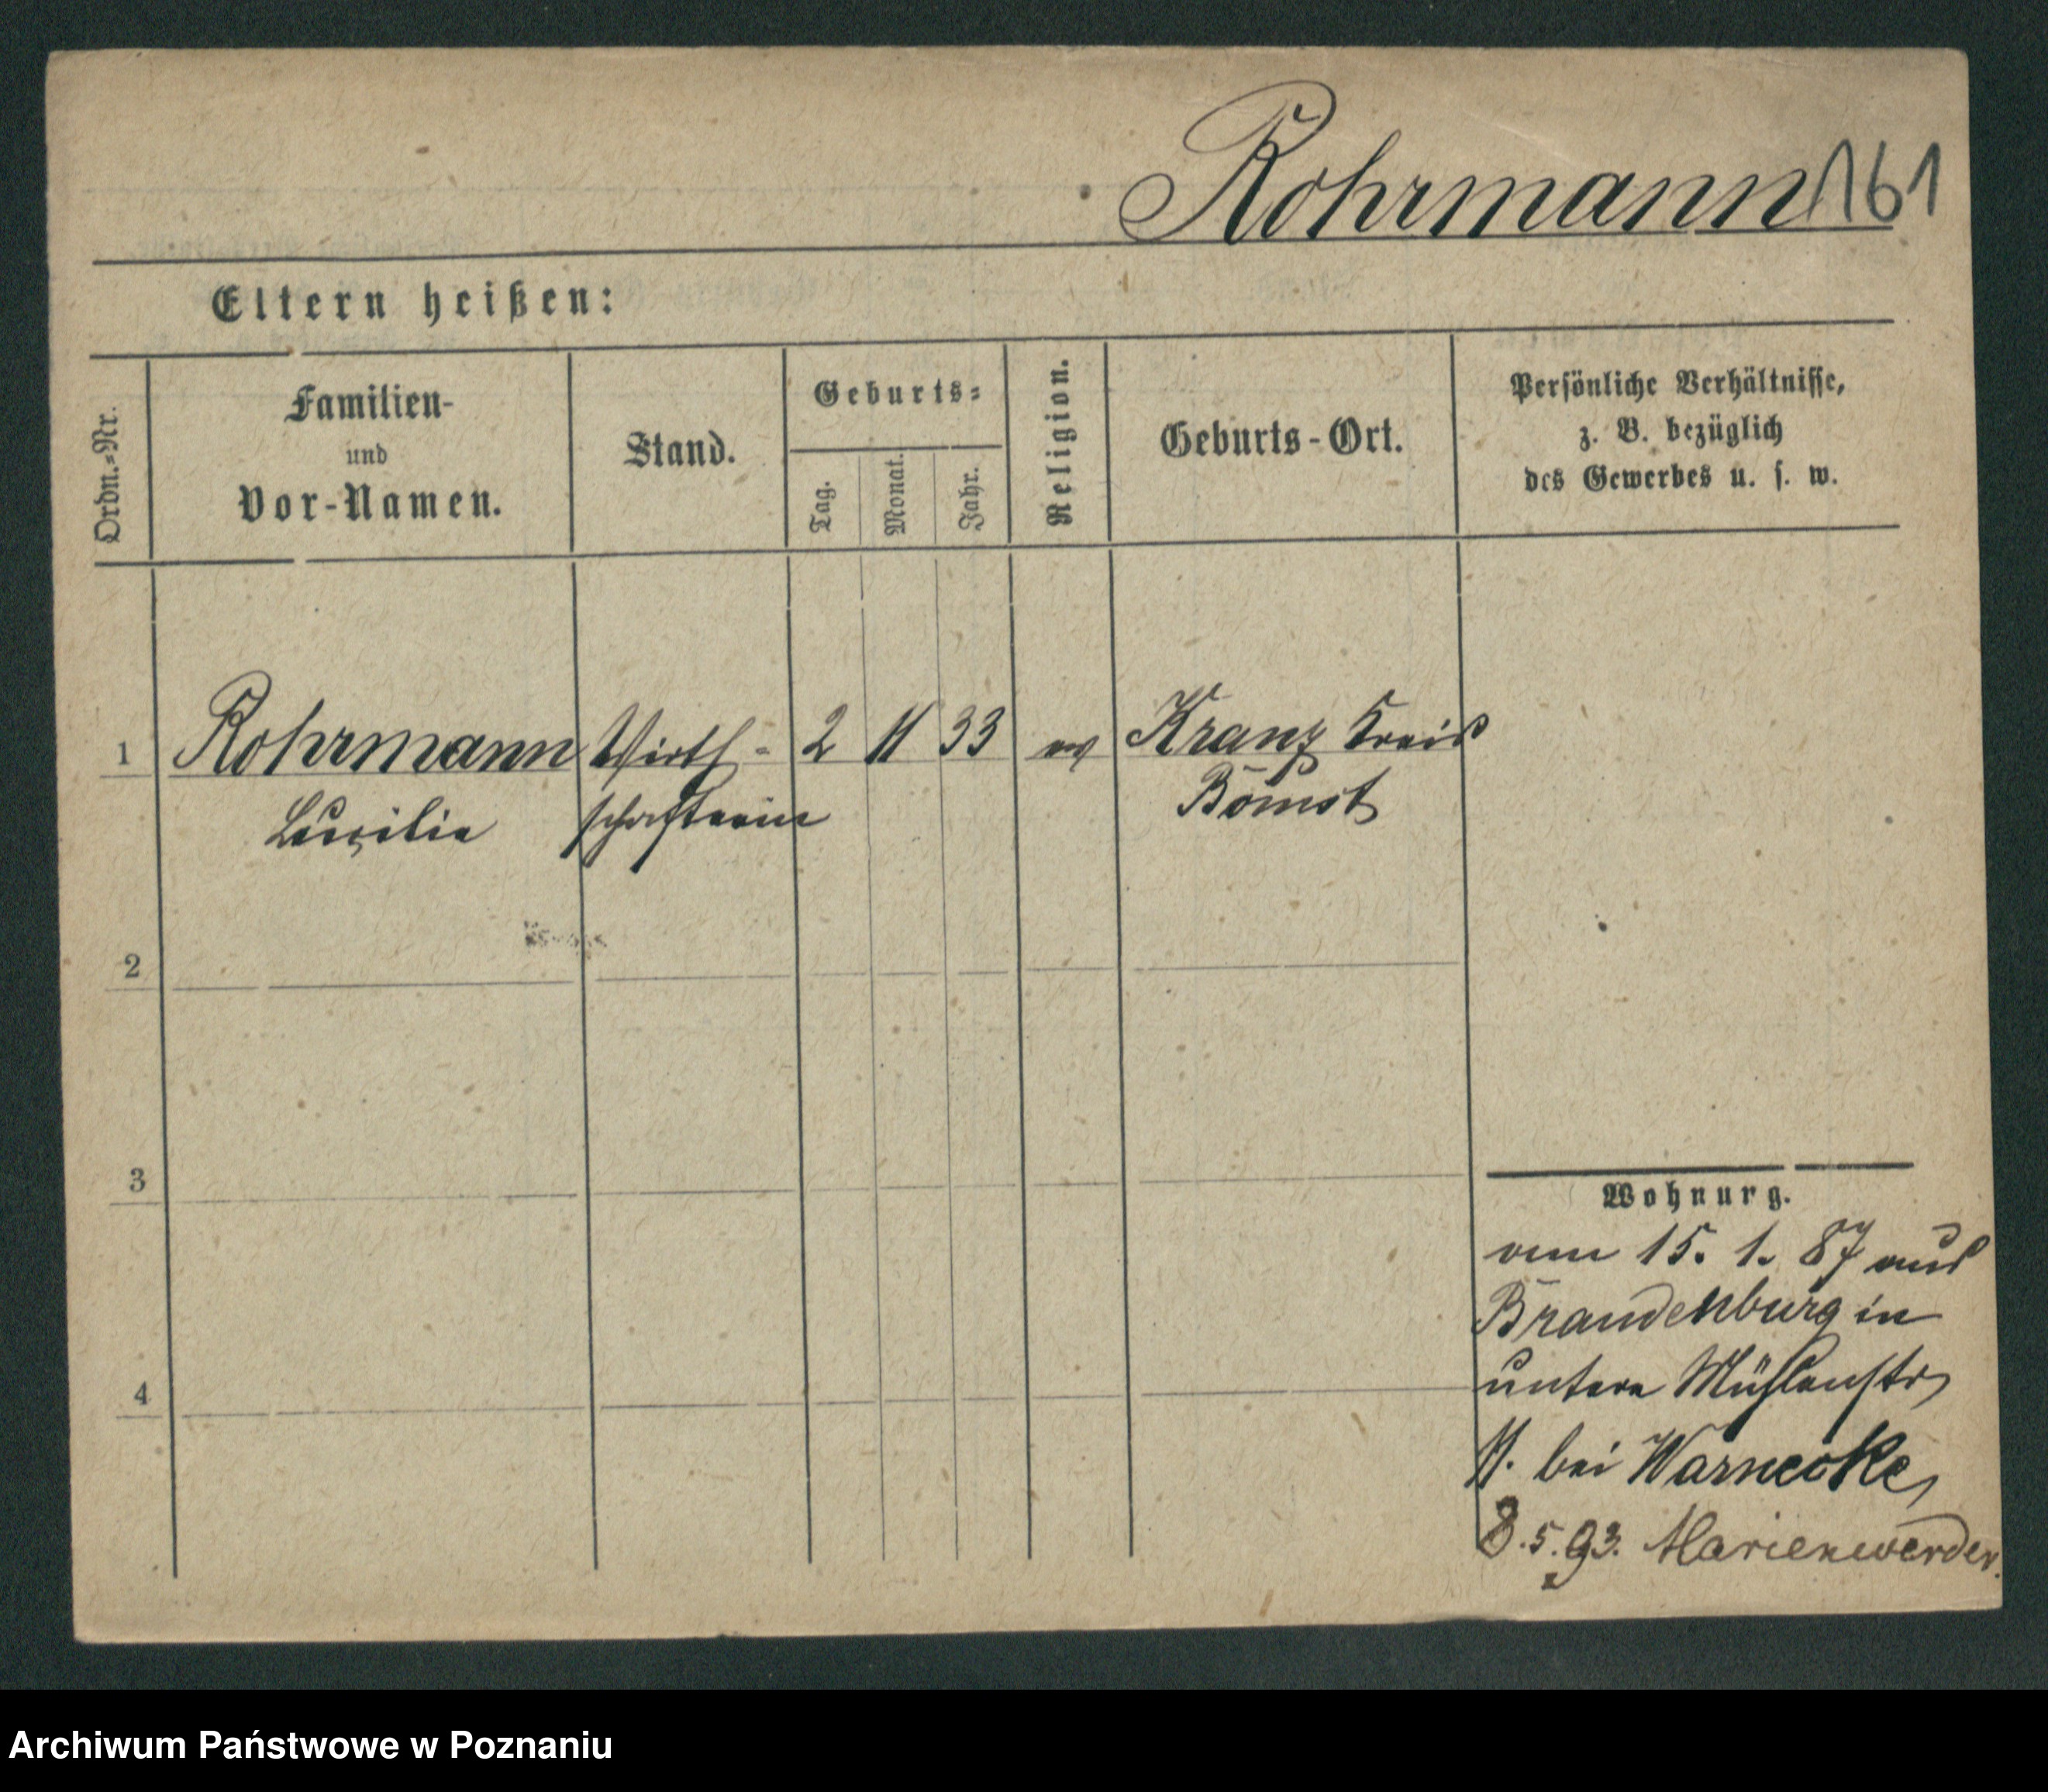 Rohrmann 161
Eltern heißen:
Ordn.=Nr.
Familien-
und
Vor-Namen.
Stand.
Geburts=
Tag.
Monat.
Jahr.
Religion.
Geburts-Ort.
Persönliche Verhältnisse,
z. B. bezüglich
des Gewerbes u. s. w.
1 Rohrmann Wirth- 2 11 33 ev Kranz Kreis
Lucilie schafterin Bomst
2
3
4
Wohnurg.
vom 15. 1. 87 aus
Brandenburg in
untere Mühlenstr
11. bei Warnecke,
8.5.93. Marienwerder.
Archiwum Państwowe w Poznaniu